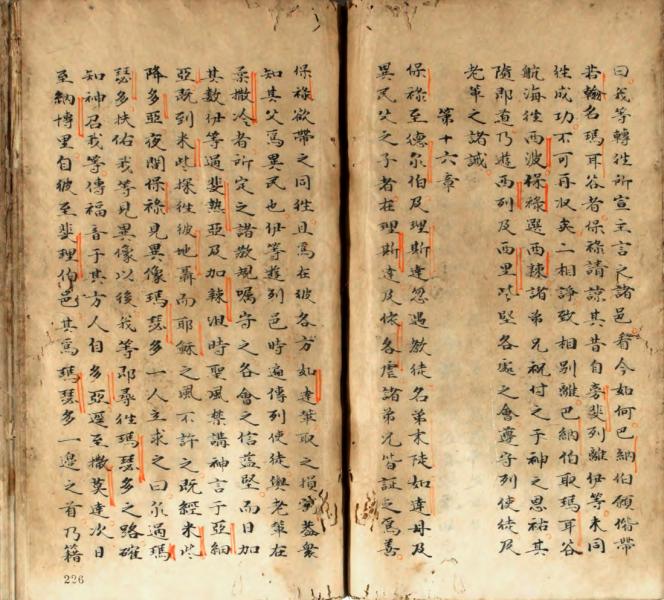 曰我等轉徃所宣主言之諸邑看今如何巴納伯願偕帶
若翰名瑪耳谷者保祿請諒其昔自旁斐列離伊等未同
徃成功不可再収矣二相諍致相別離巴納伯取瑪耳谷
航海徃西波保祿選西辣諸弟兄祝付之于神之恩祐其
隨即煮乃遊西列及西里些堅各處之會遵守列使徒及
老軰之諸誡
第十六章
保祿至德尔伯及理斯達忽遇教徒名弟末陡如達母及
異民父之子者在理斯達及依各虐諸弟兄皆証之為善
保祿欲帶之同徃且為在彼各方如達軰取之損㓰葢衆
知其父為異民也伊等遊列邑時遍傳列使徒與老軰在
柔撒冷者所定之諸教規囑守之各會之信葢堅而日加
其数伊等過斐熱亞及加辣雅時聖風禁講神言于亞細
亞既到米些探徃彼地聶而耶穌之風不許之既經米些
降多亞夜間保祿見異像瑪瑟多一人立求之曰尔過瑪
瑟多扶佑我等見異像以後我等即尋徃瑪瑟多之路確
知神召我等傳福音于其方人自多亞歷至撒莫達次日
至納博里自彼至斐理伯邑其為瑪瑟多一邊之首乃籍
226